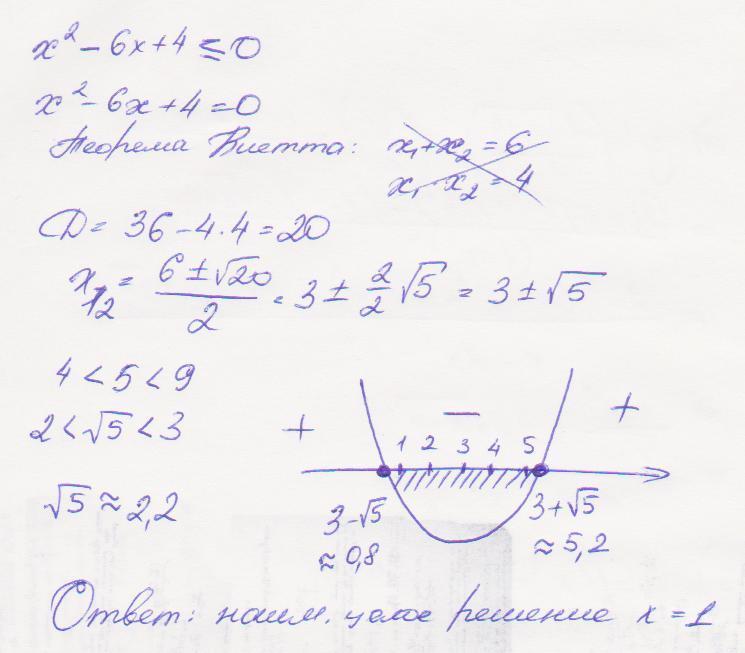 x² - 6x + 4 ≤ 0
x² - 6x + 4 = 0
Теорема Виетта: x₁ + x₂ = 6
x₁ · x₂ = 4
D = 36 - 4·4 = 20
x₁,₂ = (6 ± √20)/2 = 3 ± 2/2 √5 = 3 ± √5
4 < 5 < 9
2 < √5 < 3
√5 ≈ 2,2
+ − +
1 2 3 4 5
3-√5 3+√5
≈ 0,8 ≈ 5,2
Ответ: наим. целое решение x = 1